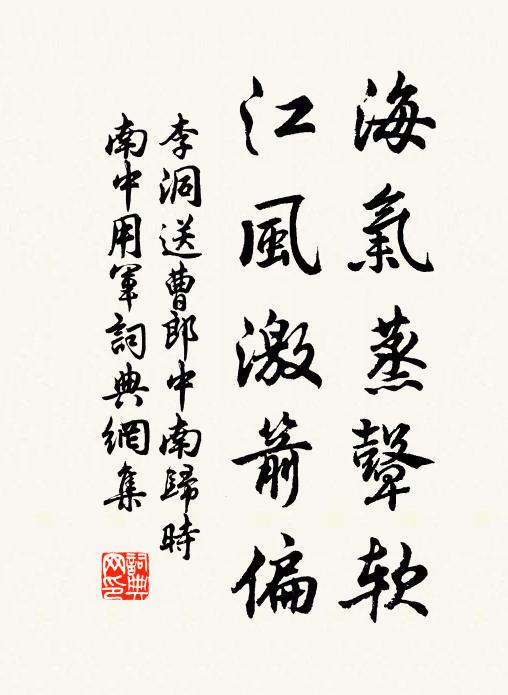 海氣蒸鼙軟
江風激箭偏
李洞送曹郎中南歸時
南中用軍詞典網集
詞典
网印